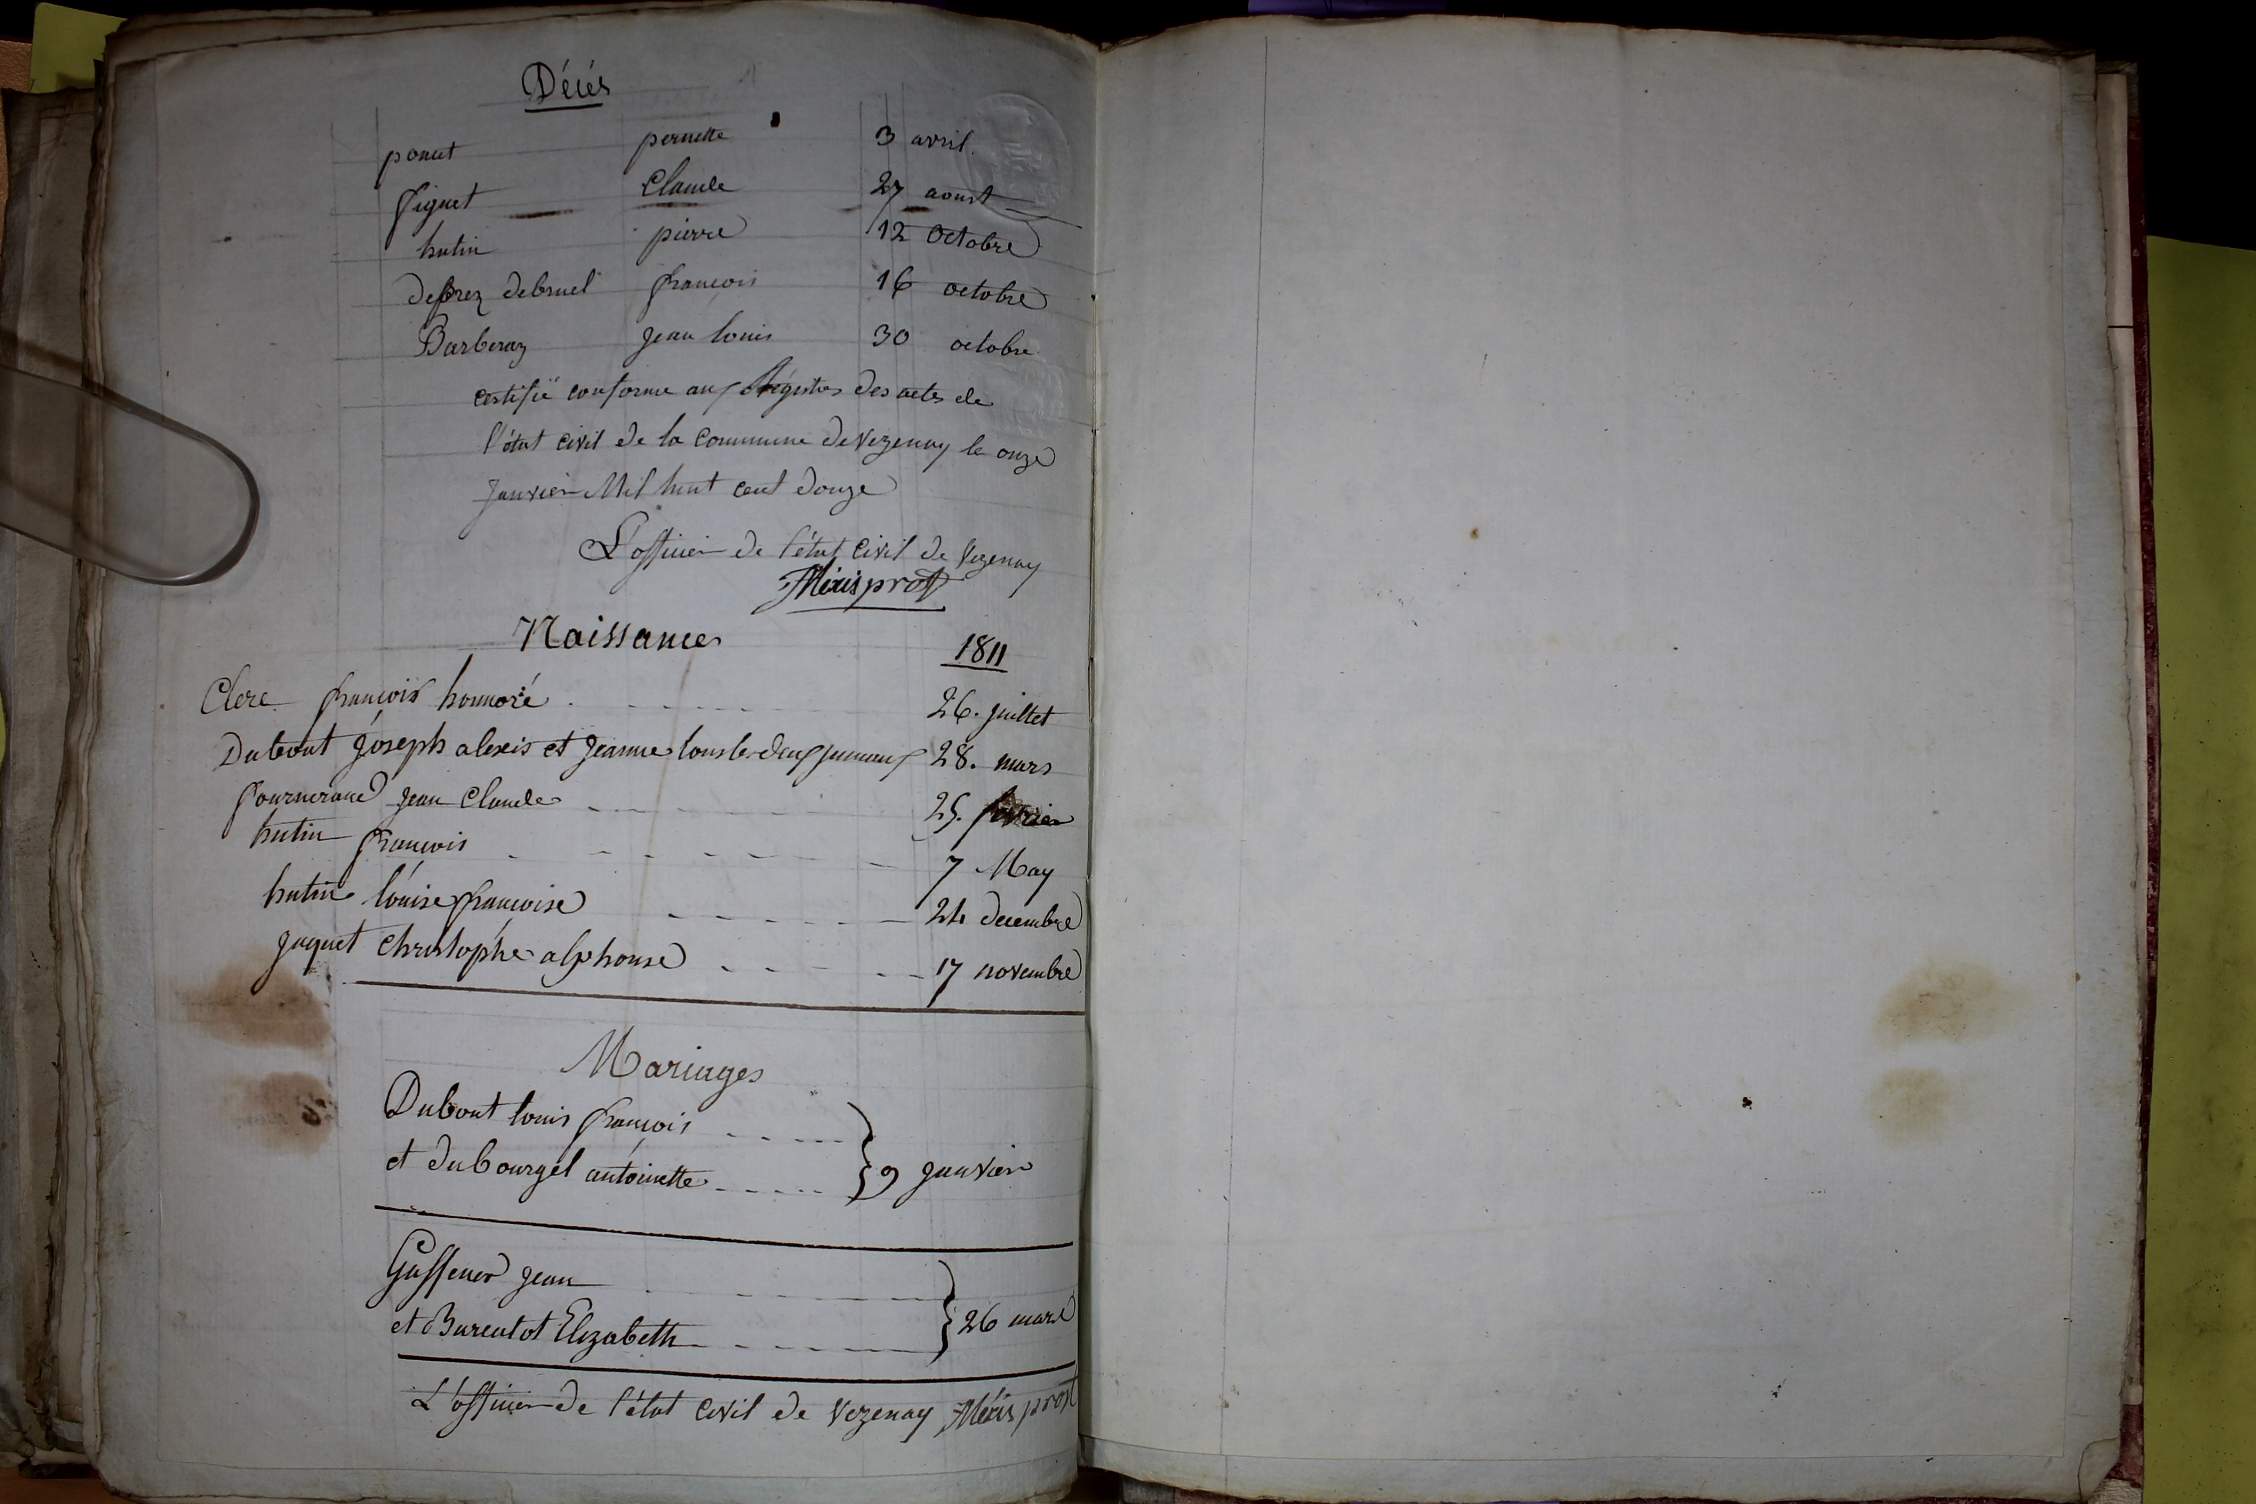 Décés
ponut pernette 3 avril.
piguet Claude 27 aoust
hutin pierre 12 Octobre
deprez debruel françois 16 octobre
Barberaz jean louis 30 octobre
certifié conforme aux Régistres des actes de
l'état civil de la Commune de Vezenay le onze
Janvier Mil huit cent douze
L'officier de l'état civil de Vezenay
prost
Naissances 1811
Clerc françois honnoré 26. juillet
Dubout jóseph alexis et jeanne tous les deux jumeaux 28. mars
jean Claude 25. fevrier
hutin françois 7 May
hutin louise françoise 24 decembre
jaquet Christophe alphonse 17 novembre
Mariages
Dubout louis françois
et dubourgel antoinette } 9 janvier
jean
et Burentot Elizabeth } 26 mars
L'officier de l'état civil de Vezenay prost